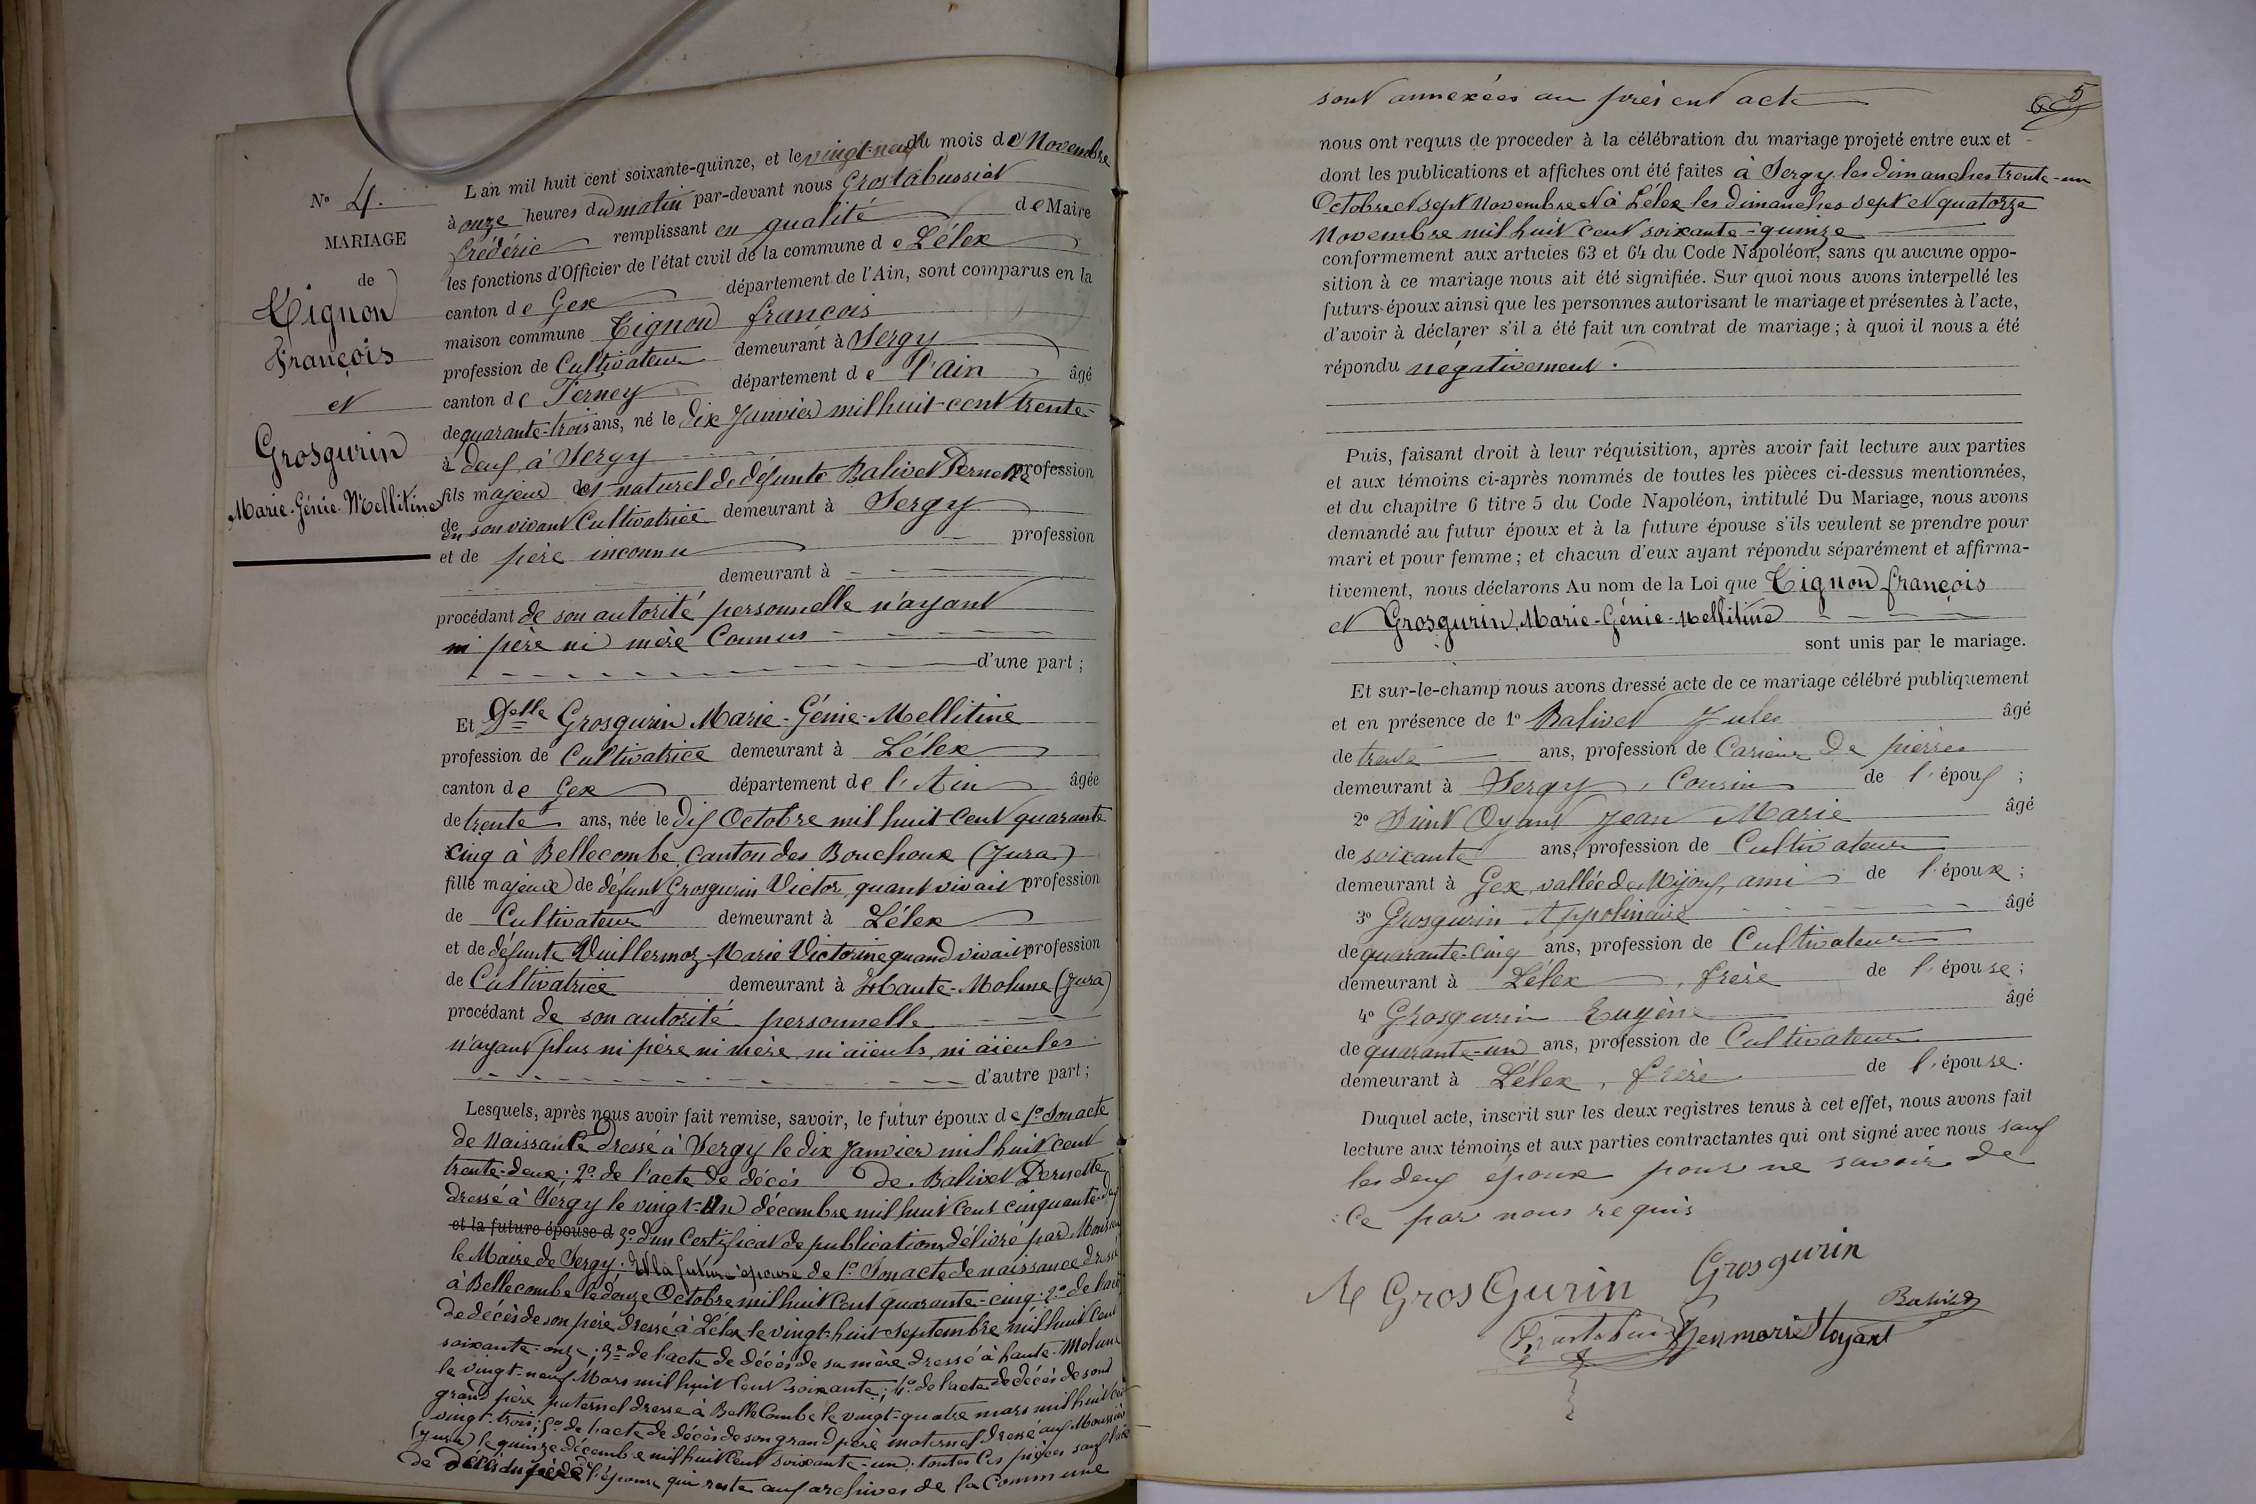 N° 4.
MARIAGE
de
Tignon
François
et
Grosgurin
Marie-Génie-Mellitine
L'an mil huit cent soixante-quinze, et le vingt-neuf du mois de Novembre
à onze heures du matin par-devant nous Grostabussiat
frédéric remplissant en qualité de Maire
les fonctions d'Officier de l'état civil de la commune de Lélex
canton de Gex département de l'Ain, sont comparus en la
maison commune Tignon françois
profession de Cultivateur demeurant à Sergy
canton de Ferney département de l'ain âgé
de quarante-trois ans, né le dix Janvier mil huit cent trente-
à deux à Sergy
fils majeur et naturel de défunte Balivet Pernette profession
de son vivant Cultivatrice demeurant à Sergy
et de père inconnu profession
demeurant à
procédant de son autorité personnelle n'ayant
ni père ni mère Connus
d'une part ;
Et Delle Grosgurin Marie-Génie-Mellitine
profession de Cultivatrice demeurant à Lélex
canton de Gex département de l'Ain âgée
de trente ans, née le dix Octobre mil huit cent quarante
cinq à Bellecombe, Canton des Bouchoux (Jura)
fille majeure de défunt Grosgurin Victor, quant vivait profession
de Cultivateur demeurant à Lélex
et de défunte Vuillermoz Marie Victorine quand vivait profession
de Cultivatrice demeurant à Haute-Molune (Jura)
procédant de son autorité personnelle
n'ayant plus ni père ni mère, ni aïeuls, ni aïeules
d'autre part ;
Lesquels, après nous avoir fait remise, savoir, le futur époux de 1° Son acte
de Naissance Dressé à Sergy le dix Janvier mil huit cent
trente-deux ; 2° de l'acte de décès de Balivet Pernette
dressé à Sergy le vingt-Un décembre mil huit cent cinquante-deux
et la future épouse d 3° d'un Certificat de publications délivré par Monsieur
le Maire de Sergy. Et la future épouse de 1° Son acte de naissance dressé
à Bellecombe le douze Octobre mil huit Cent quarante-cinq ; 2° de l'acte
de décès de son père dressé à Lélex le vingt-huit Septembre mil huit Cent
soixante-onze ; 3° de l'acte de décès de sa mère dressé à haute-Molune
le vingt-neuf Mars mil huit Cent soixante ; 4° de l'acte de décès de son
grand père paternel dressé à BelleCombe le vingt-quatre mars mil huit cent
vingt-trois ; 5° de l'acte de décès de son grand père maternel dressé aux Moussières
(Jura) le quinze décembre mil huit Cent soixante-un. toutes Ces pièces sauf l'acte
de décès du père de l'épouse qui reste aux archives de la Commune
sont annexées au présent acte
5
nous ont requis de proceder à la célébration du mariage projeté entre eux et
dont les publications et affiches ont été faites à Sergy les dimanches trente-un
Octobre et sept Novembre et à Lélex les dimanches sept et quatorze
Novembre mil huit cent soixante-quinze
conformement aux articles 63 et 64 du Code Napoléon, sans qu'aucune oppo-
sition à ce mariage nous ait été signifiée. Sur quoi nous avons interpellé les
futurs époux ainsi que les personnes autorisant le mariage et présentes à l'acte,
d'avoir à déclarer s'il a été fait un contrat de mariage ; à quoi il nous a été
répondu négativement.
Puis, faisant droit à leur réquisition, après avoir fait lecture aux parties
et aux témoins ci-après nommés de toutes les pièces ci-dessus mentionnées,
et du chapitre 6 titre 5 du Code Napoléon, intitulé Du Mariage, nous avons
demandé au futur époux et à la future épouse s'ils veulent se prendre pour
mari et pour femme ; et chacun d'eux ayant répondu séparément et affirma-
tivement, nous déclarons Au nom de la Loi que Tignon françois
et Grosgurin Marie-Génie-Mellitine
sont unis par le mariage.
Et sur-le-champ nous avons dressé acte de ce mariage célébré publiquement
et en présence de 1° Balivet Jules âgé
de trente ans, profession de Carieur de pierres
demeurant à Sergy, Cousin de l'époux ;
2° Saint Oyant Jean Marie âgé
de soixante ans, profession de Cultivateur
demeurant à Gex, vallée de Mijoux, ami de l'époux ;
3° Grosgurin Appolinaire âgé
de quarante-cinq ans, profession de Cultivateur
demeurant à Lélex, frère de l'épouse ;
4° Grosgurin Eugène âgé
de quarante-un ans, profession de Cultivateur
demeurant à Lélex, frère de l'épouse.
Duquel acte, inscrit sur les deux registres tenus à cet effet, nous avons fait
lecture aux témoins et aux parties contractantes qui ont signé avec nous sauf
les deux époux pour ne savoir de
Ce par nous requis
Grosgurin
A GrosGurin
Balivet